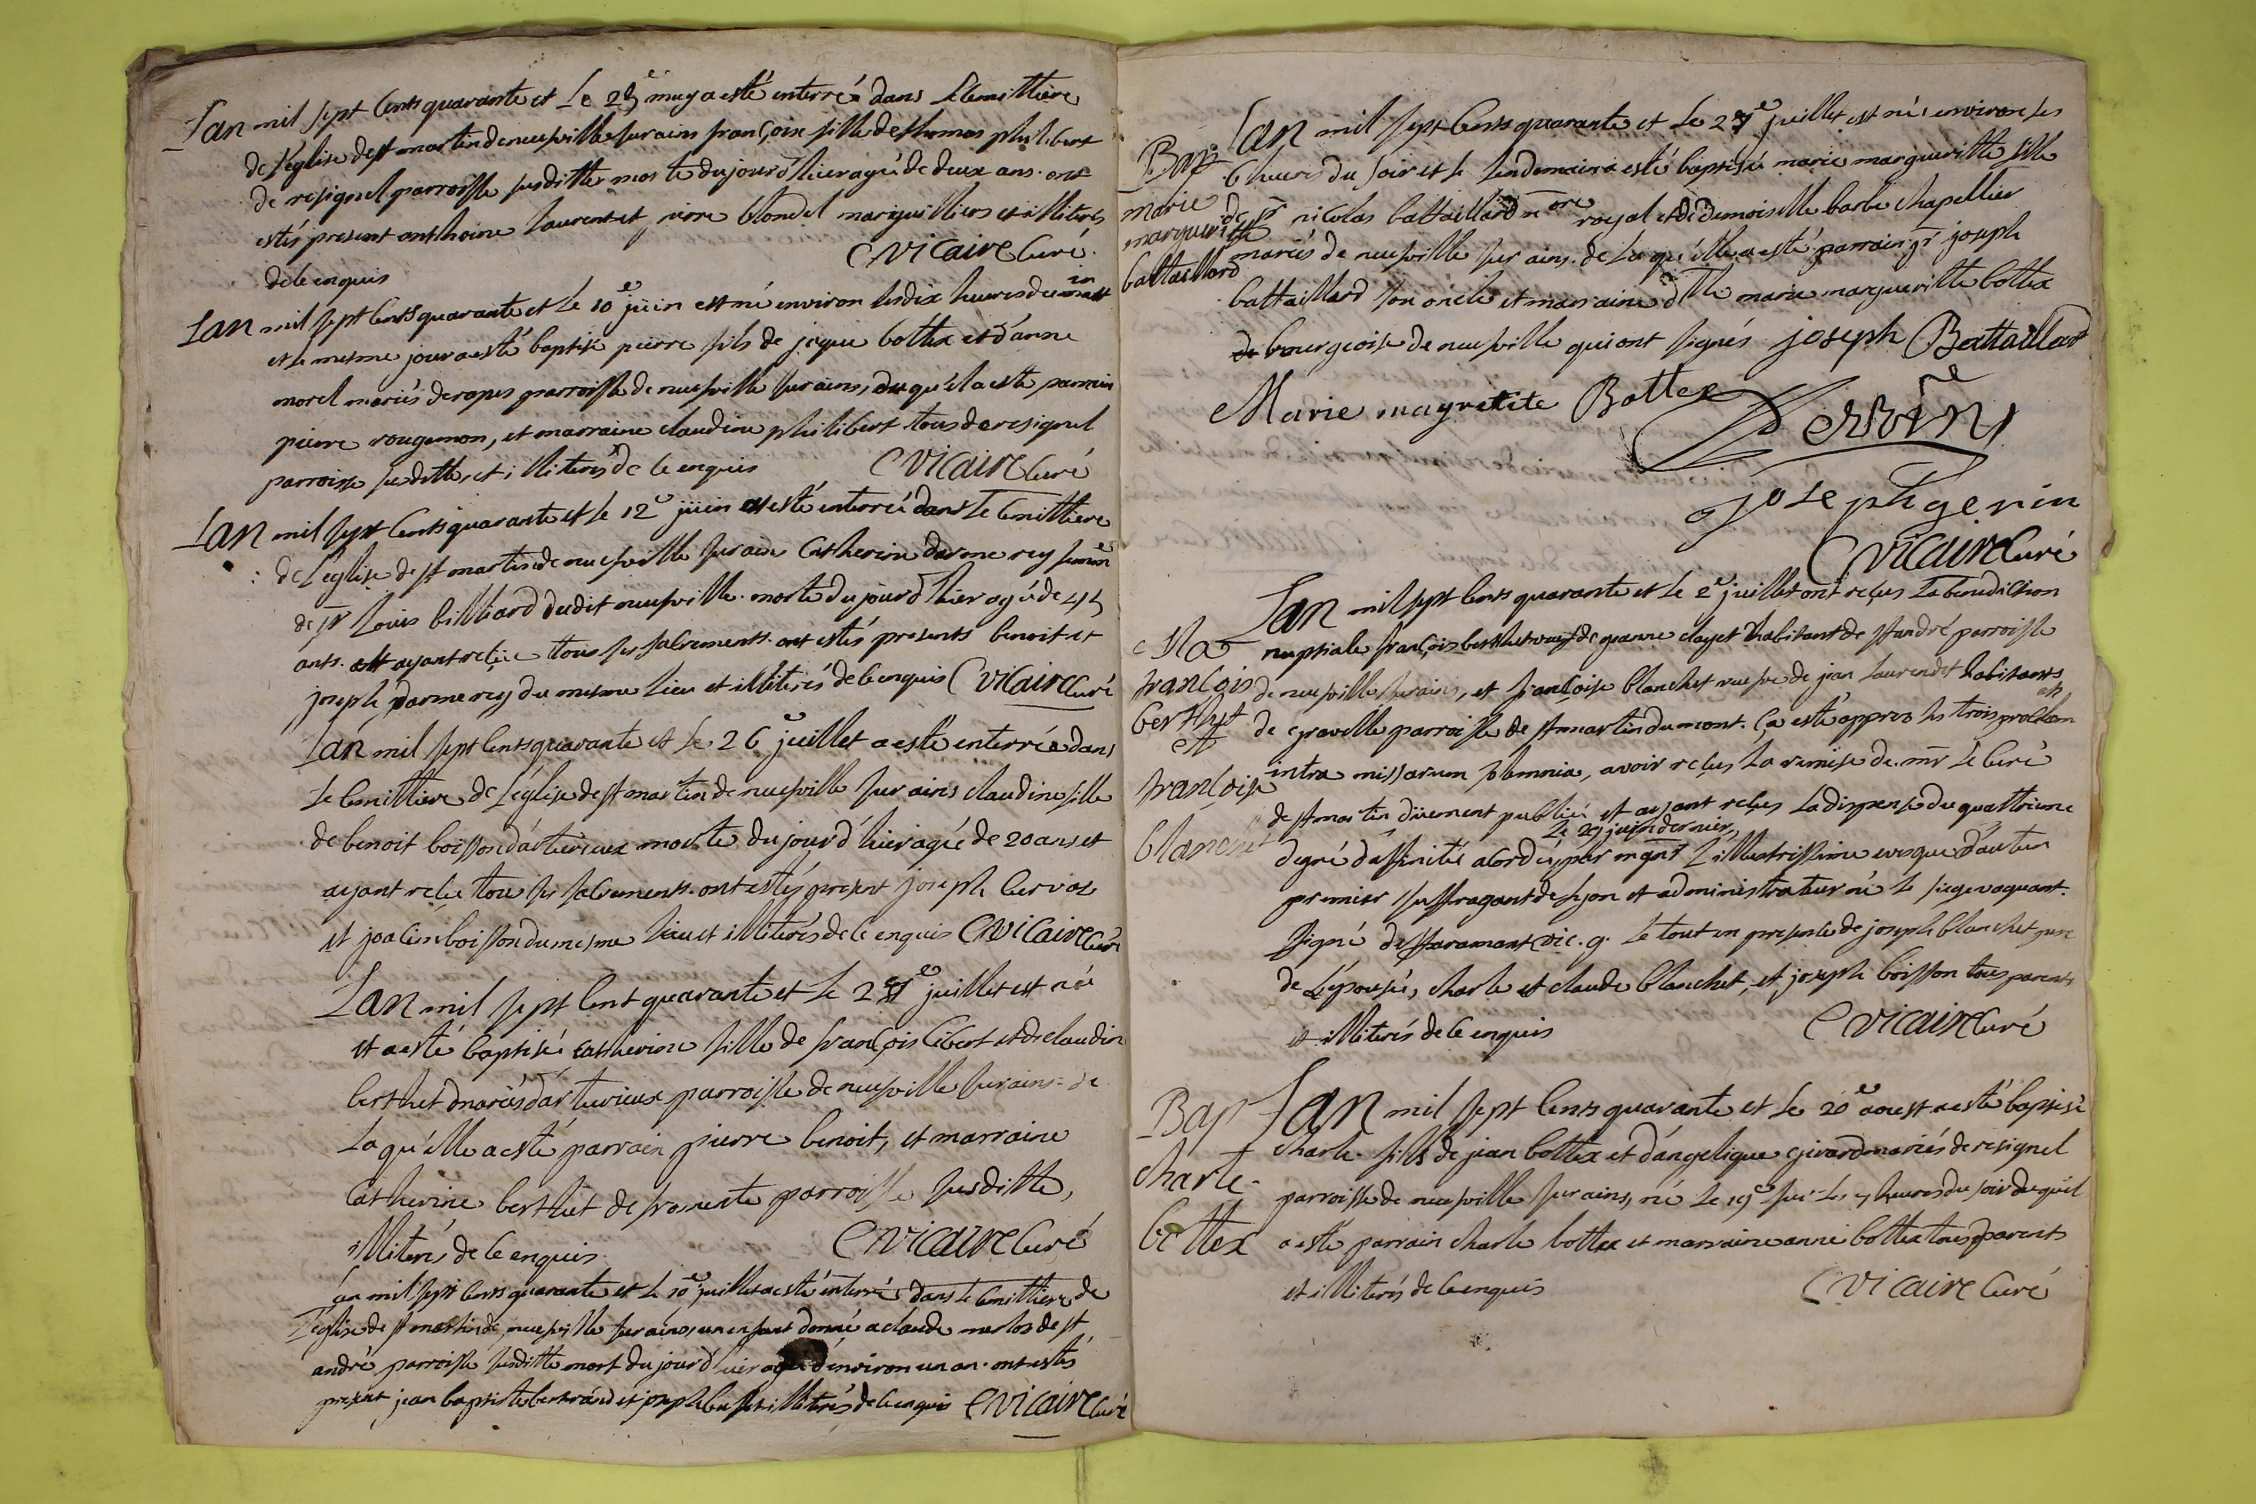 Lan mil sept Cents quarante et Le 25e may a esté enterré dans Le Cemittiere
de L'église de st martin de neufville sur ains françoise fille de thomas philibert
de resignel parroisse susditte morte du jourd'hier agé de deux ans. ont
estés present anthoine Laurent et pierre blondel marguilliers et illiterés
de ce enquis Vicaire Curé.
Lan mil sept Cents quarante et Le 10e juin est né environ Les dix heures du matin
et Le mesme jour a esté baptisé pierre fils de jaque bottex et d'anne
morel mariés de ropes parroisse de neufville sur ains, du qu'el a esté parrain
pierre rougemon, et marraine claudine philibert tous de resignel
parroisse susditte, et illiterés de ce enquis Vicaire Curé
Lan mil sept Cents quarante et Le 12e juin a esté enterrée dans Le Cemittiere
de L'église de st martin de neufville sur ains Catherine darmerey femme
de sr Louis billiard dudit neufville. morte du jourd'hier agé de 45
ans. ayant reçue tous ses sacrements. ont estés presents benoit et
joseph darmerey du mesme Lieu et illiterés de ce enquis Vicaire Curé
Lan mil sept Cents quarante et Le 26e juillet a esté enterrée dans
Le Cemittiere de L'église de st martin de neufville sur ains claudine fille
de benoit boisson d'artuirieux morte du jourd'hier agé de 20 ans et
ayant reçue tous ses sacrements. ont estés present joseph
et boisson du mesme Lieu et illiterés de ce enquis Vicaire Curé
Lan mil sept Cent quarante et Le juillet est née
et a esté baptisé Catherine fille de françois Cibert et de claudine
berthet mariés d'arturieux parroisse de neufville sur ains. de
La qu'elle a esté parrain pierre benoit, et marraine
Catherine berthet de fromente parroisse susditte,
illiterés de ce enquis Vicaire Curé
Lan mil sept Cents quarante et Le 10e juillet a esté enterré dans Le Cemittiere de
L'église de st martin de neufville sur ains, un enfant donné a claude merlos de st
andré parroisse susditte mort du jourd'hier agé d'environ un an. ont estés
present jean baptiste bertrand et joseph et illiterés de ce enquis Vicaire Curé
Bap: Lan mil sept Cents quarante et Le juillet est née environ Les
6 heures du soir et Le Lendemain a esté baptisée marie margueritte fille
marie de sr nicolas battaillard nore royal et de demoiselle barbe chapellier
margueritte mariés de neufville sur ains. de La qu'elle a esté parrain sr joseph
battaillard battaillard son oncle et marraine dlle marie margueritte bottex
bourgeoise de neufville qui ont signés joseph Battaillard
Marie magretite Bottex
joseph genin
Vicaire Curé
Lan mil sept Cents quarante et Le 2e juillet ont reçus La benediction
nuptiale françois berthet veuf de jeanne clayet habitant de st andré parroisse
françois de neufville sur ains, et françoise blanchet veufve de jean Laurendet habitants
berthet de gravelle parroisse de st martin du mont. Ça esté appres Les trois proclamations
et intra missarum solemnia, avoir reçus La remise de mr Le Curé
françoise de st martin düement publiée et ayant reçus La dispense du quattrieme
Le 29 juin dernier,
blanchet degré d'affinité acordée par mgnr L'illustrissime evesque d'autun
premier suffragant de Lyon et administrateur né Le siege vaquant.
signé de vic. g. Le tout en presence de joseph blanchet pere
de L'épousée, charle et claude blanchet, et joseph boisson tous parents
et illiterés de ce enquis Vicaire Curé
Bap Lan mil sept Cents quarante et Le 20e aoust a esté baptisé
charle fils de jean bottex et d'angelique girard mariés de resignel
charle parroisse de neufville sur ains, né Le 19e sur Les heures du soir du qu'el
bottex a esté parrain charle bottex et marraine anne bottex tous parents
et illiterés de ce enquis Vicaire Curé